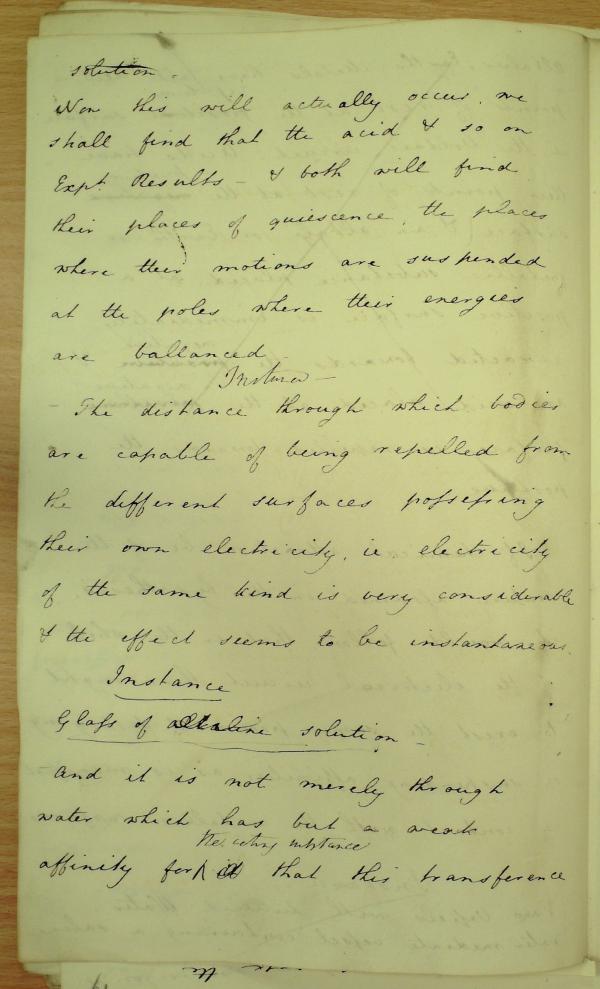 solution.
Now this will actually occur. we
shall find that the acid & so on
Expt. Results - & both will find
their places of quiescence, the places
where their motions are suspended
at the poles where their energies
are ballanced
The distance through which bodies
are capable of being repelled from
the different surfaces possessing
their own electricity, ie. electricity
of the same kind is very considerable
& the effect seems to be instantaneous.
Instance
Glass of alkaline solution -
and it is not merely through
water which has but a weak
the acting substance
affinity for it that this transference